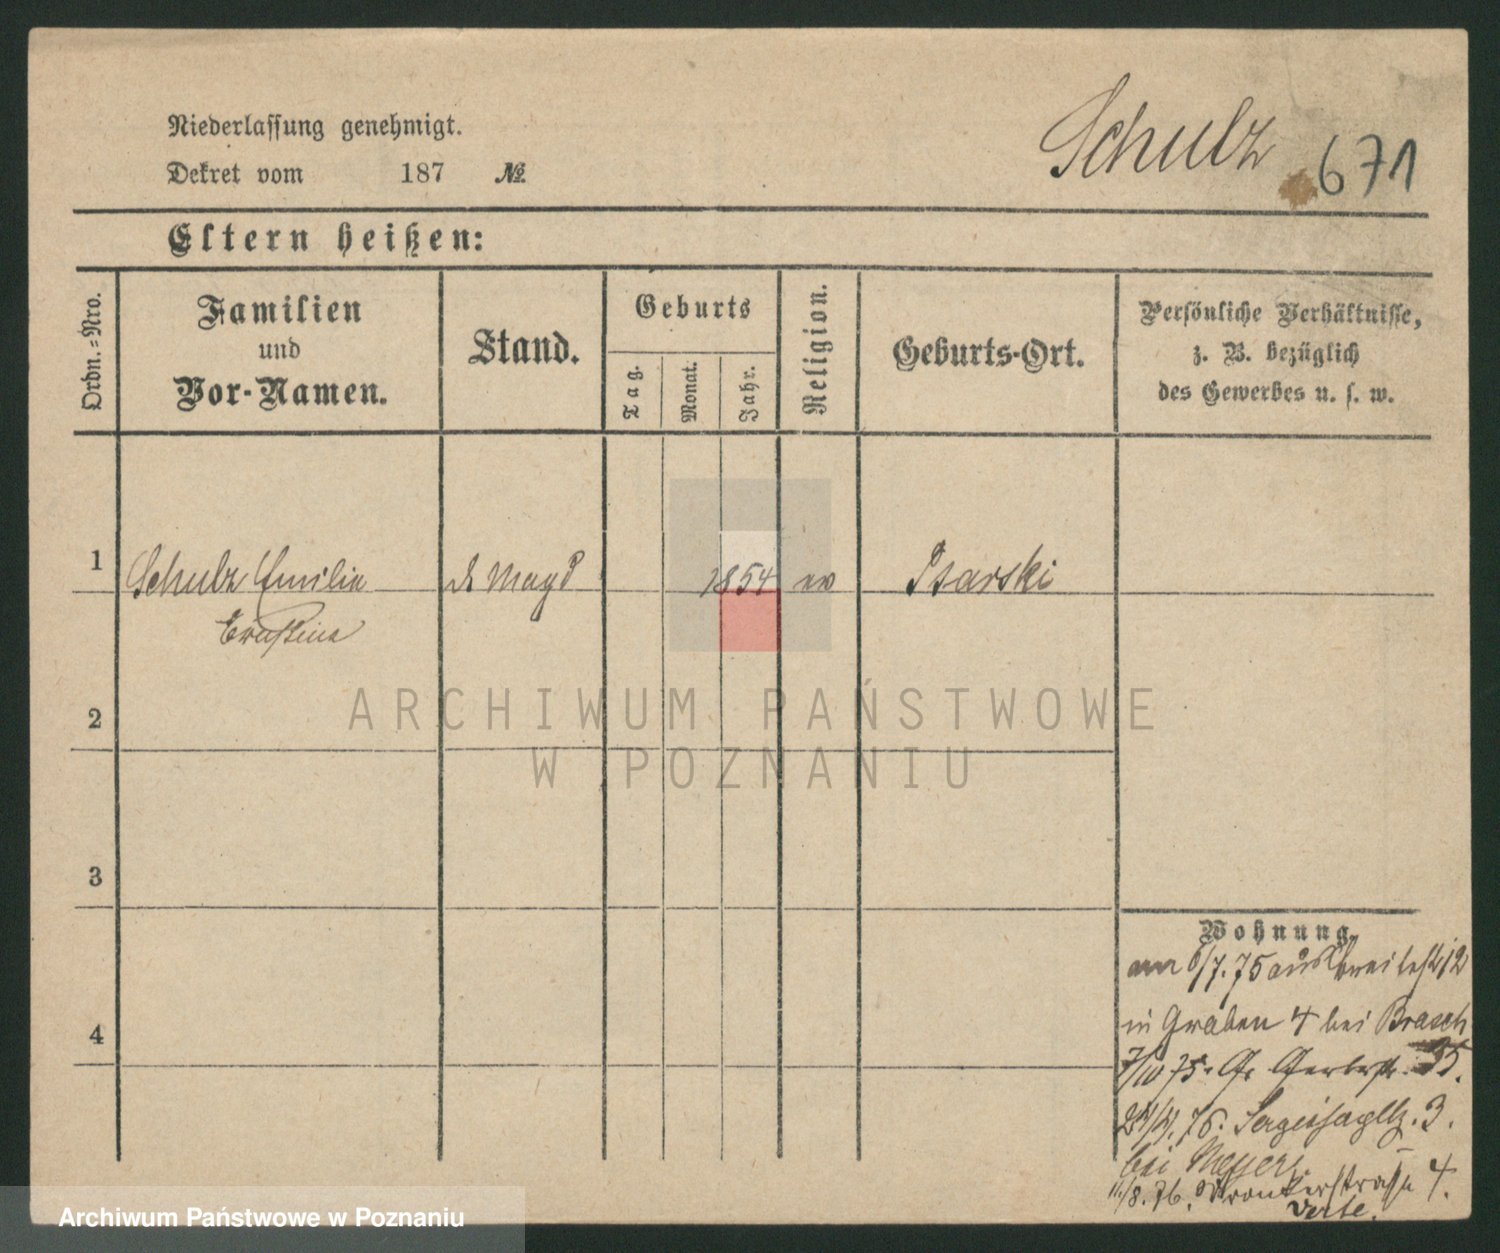 Niederlassung genehmigt.
Dekret vom 187 №
Schulz 671
Eltern heißen:
Ordn.-Nro.
Familien
und
Vor-Namen.
Stand.
Geburts
Tag.
Monat.
Jahr.
Religion.
Geburts-Ort.
Persönliche Verhältnisse,
z. B. bezüglich
des Gewerbes u. s. w.
1 Schulz Emilie d. Magd 1854 ev Psarski
Ernstine
2
3
4
Wohnung.
am 6/7. 75 aus Breitest 12
in Graben 4 bei Brasch
7/10 75. Gr Gerberstr. 35.
76. 3.
bei Meyer
11/8. 76. Wronkerstraße 4.
Verte.
ARCHIWUM PAŃSTWOWE
W POZNANIU
Archiwum Państwowe w Poznaniu